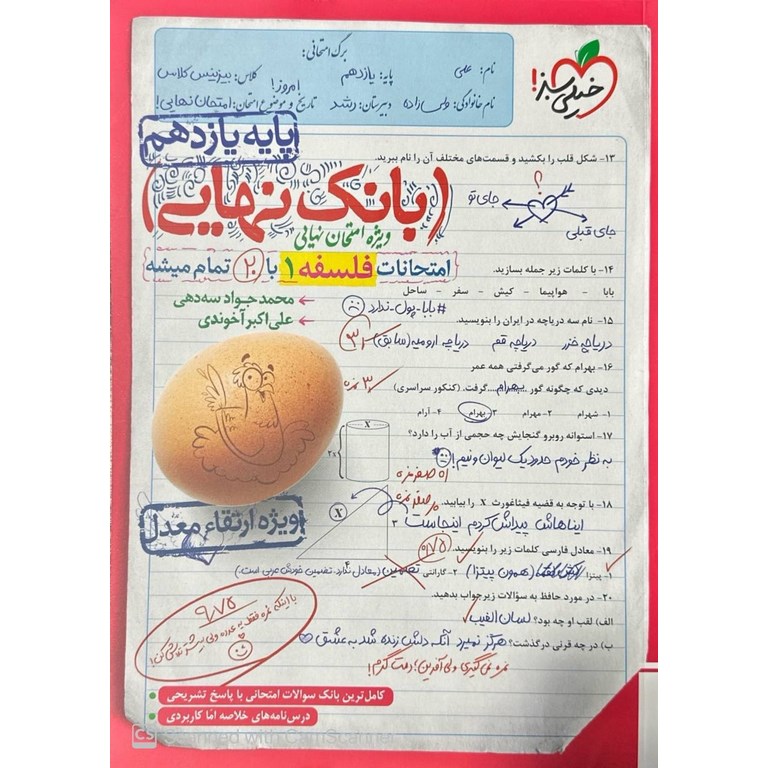 برگ امتحانی:
نام: علی
پایه: یازدهم
کلاس: بیزنیس کلاس
نام خانوادگی: ولی‌زاده
دبیرستان: رشد
تاریخ و موضوع امتحان: امروز! امتحان نهایی!
خیلی سبز!
پایه یازدهم
(بانک نهایی)
ویژه امتحان نهایی
امتحانات فلسفه ۱ با ۲۰ تمام میشه
محمدجواد سه‌دهی
علی‌اکبر آخوندی
ویژه ارتقاء معدل
۱۳- شکل قلب را بکشید و قسمت‌های مختلف آن را نام ببرید.
؟
جای تو
جای قبلی
۱۴- با کلمات زیر جمله بسازید.
بابا - هواپیما - کیش - سفر - ساحل
#بابا_پول_ندارد
۱۵- نام سه دریاچه در ایران را بنویسید.
دریاچه خزر دریاچه قم دریاچه ارومیه (سابق)
۱۶- بهرام که گور می‌گرفتی همه عمر
دیدی که چگونه گور بهرام گرفت. (کنکور سراسری)
۳ نمره
۱- شهرام ۲- مهرام ۳- بهرام ۴- آرام
۱۷- استوانه روبرو گنجایش چه حجمی از آب را دارد؟
x
2x
به نظر خودم حدود یک لیوان و نیم!
۱۸- با توجه به قضیه فیثاغورث x را بیابید.
ایناهاش پیداش کردم اینجاست
X
۳
۴
۱۹- معادل فارسی کلمات زیر را بنویسید.
۰/۷۵
۱- پیتزا (همون پیتزا) ۲- گارانتی تضمین (معادل ندارد. تضمین خودش عربی است.)
۲۰- در مورد حافظ به سؤالات زیر جواب بدهید.
الف) لقب او چه بود؟ لسان الغیب
ب) در چه قرنی درگذشت؟ هرگز نمیرد آنکه دلش زنده شد به عشق
نمره نمی‌گیری ولی آفرین! دمت گرم!
۹/۷۵
کامل‌ترین بانک سوالات امتحانی با پاسخ تشریحی
درس‌نامه‌های خلاصه اما کاربردی
CS Scanned with CamScanner